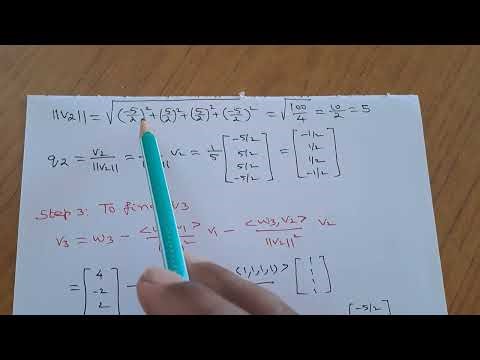 ||v2|| = √((-5/2)² + (5/2)² + (5/2)² + (-5/2)²) = √(100/4) = 10/2 = 5
q2 = v2/||v2|| = v2 = 1/5 [-5/2 5/2 5/2 -5/2] = [-1/2 1/2 1/2 -1/2]
Step 3: To find v3
v3 = w3 - / ||v1||² v1 - <w3, v2> / ||v2||² v2
= [4 -2 2 - (1,1,1,1)> [1 1 1
[-5/2